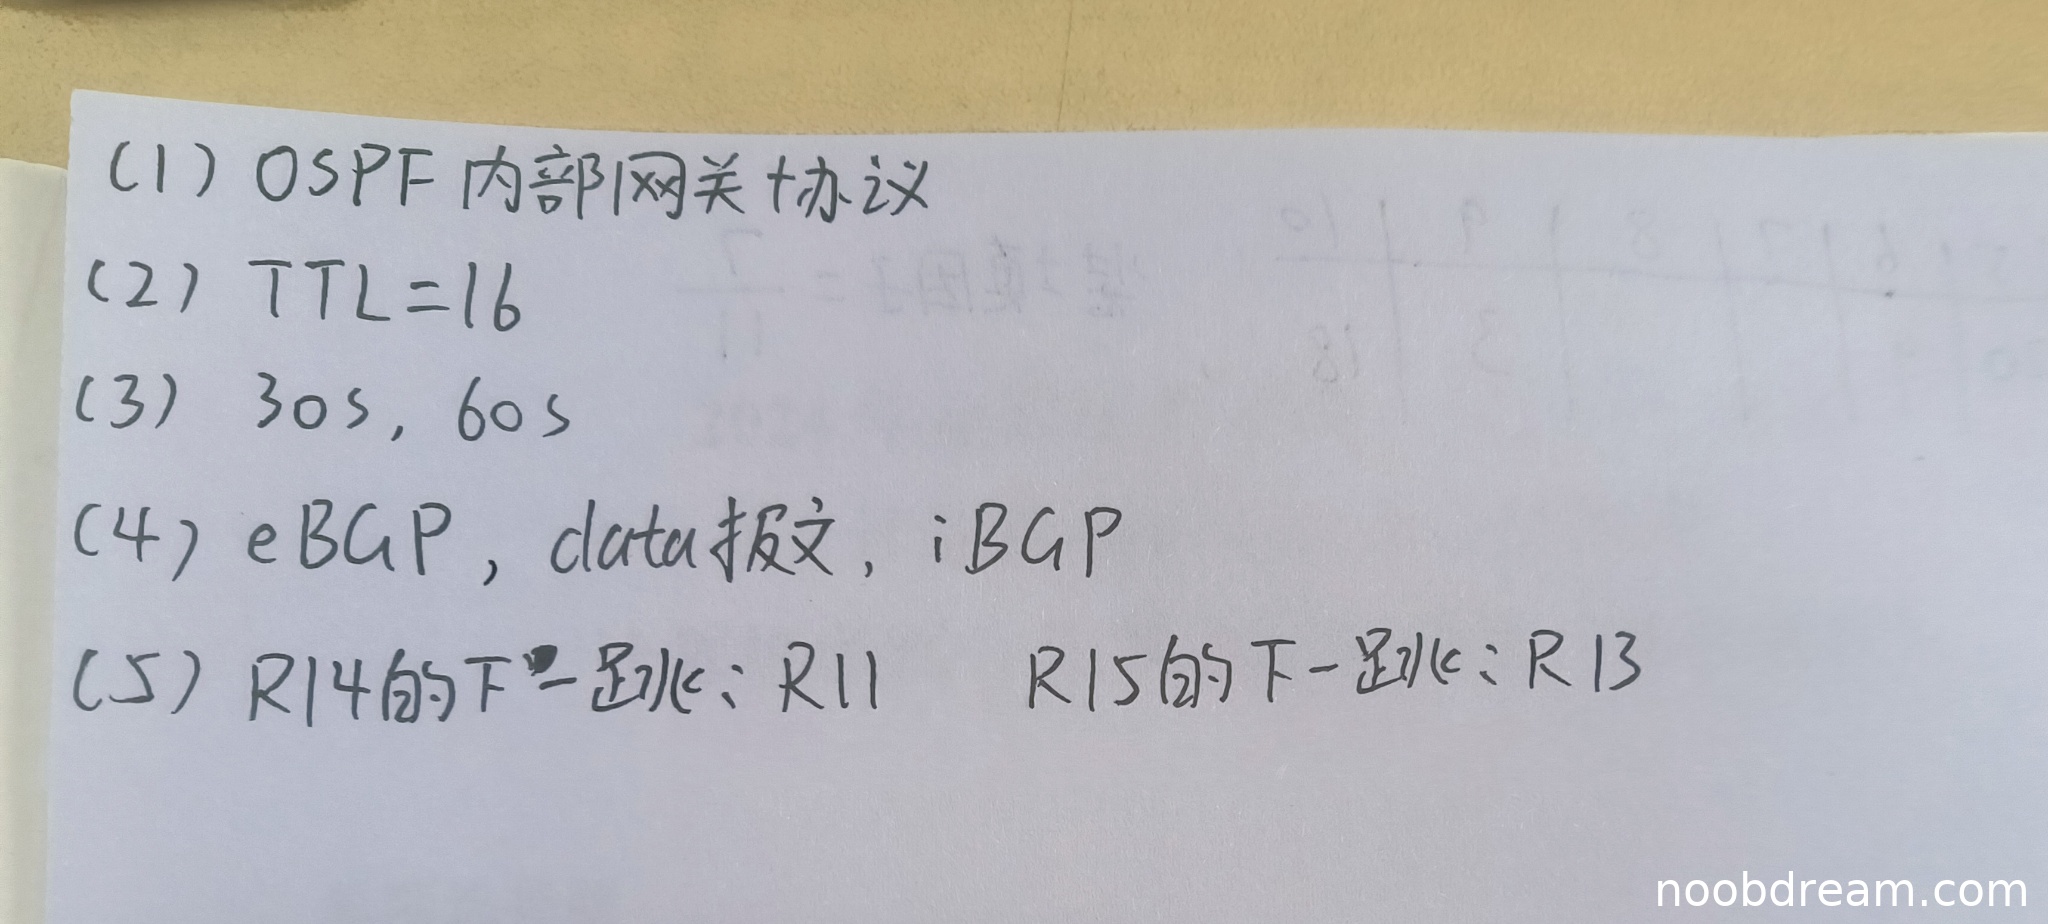 (1) OSPF 内部网关协议
(2) TTL=16
(3) 30s, 60s
(4) eBGP, data报文, iBGP
(5) R14的下一跳: R11 R15的下一跳: R13
noobdream.com